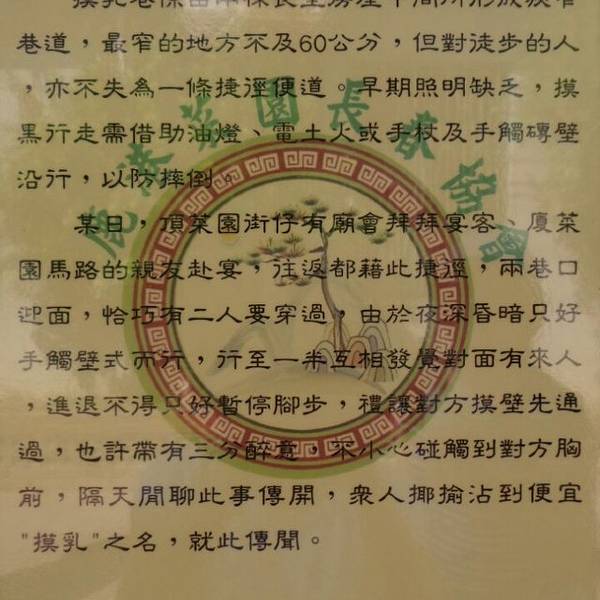 摸乳巷係留兩棟長型房屋中間所形成狹窄
巷道，最窄的地方不及60公分，但對徒步的人
，亦不失為一條捷徑便道。早期照明缺乏，摸
黑行走需借助油燈、電土火或手杖及手觸磚壁
沿行，以防摔倒。
某日，頂菜園街仔有廟會拜拜宴客、廈菜
園馬路的親友赴宴，往返都藉此捷徑，兩巷口
迎面，恰巧有二人要穿過，由於夜深昏暗只好
手觸壁式而行，行至一半互相發覺對面有來人
，進退不得只好暫停腳步，禮讓對方摸壁先通
過，也許帶有三分醉意，不小心碰觸到對方胸
前，隔天閒聊此事傳開，眾人揶揄沾到便宜
"摸乳"之名，就此傳聞。
鹿港菜園長黃協會